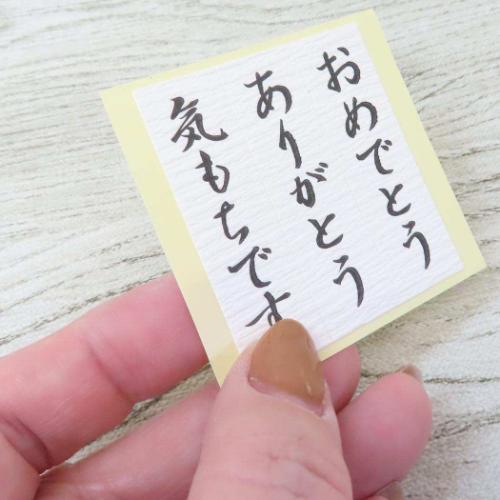 おめでとう
ありがとう
気もちです